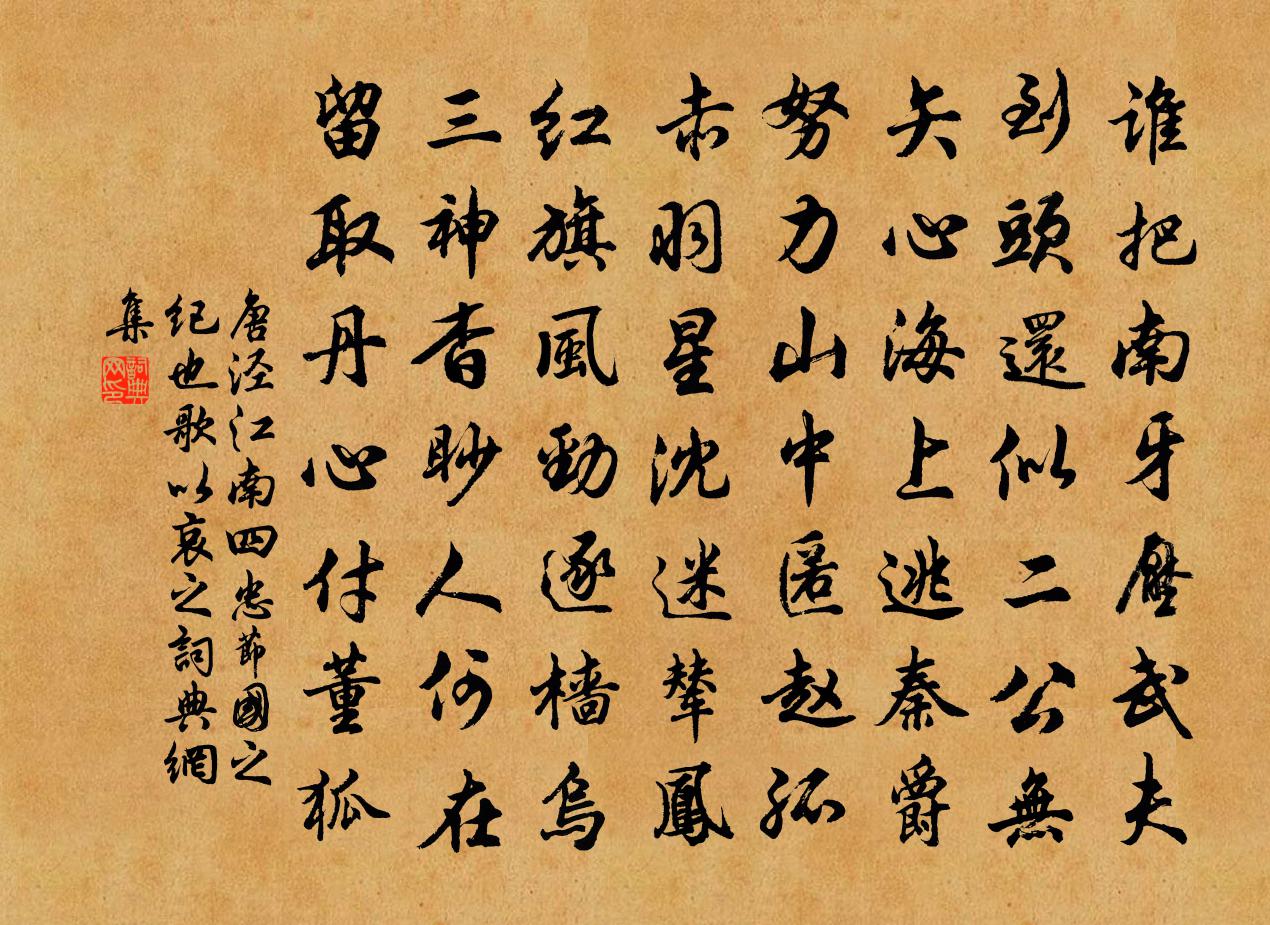 谁把南牙壓武夫
到頭還似二公無
矢心海上逃秦爵
努力山中匿赵孤
赤羽星沈迷輦鳳
红旗風勁逐檣烏
三神杳眇人何在
留取丹心付董狐
唐泾江南四忠節國之
纪也歌以哀之詞典網
集
詞典网印